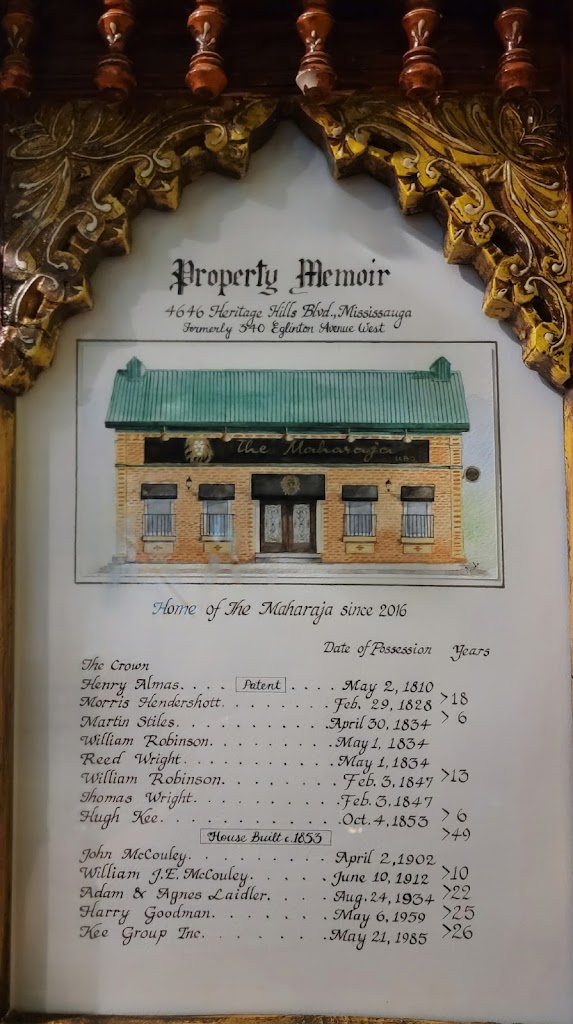 Property Memoir
4646 Heritage Hills Blvd., Mississauga
Formerly 540 Eglinton Avenue West
The Maharaja
Home of The Maharaja since 2016
Date of Possession Years
The Crown
Henry Almas. . . . Patent . . . . May 2, 1810
>18
Morris Hendershott. . . . . . . . Feb. 29, 1828
> 6
Martin Stiles. . . . . . . . . . . April 30, 1834
William Robinson. . . . . . . . . May 1, 1834
Reed Wright. . . . . . . . . . . May 1, 1834
>13
William Robinson. . . . . . . . Feb. 3, 1847
Thomas Wright. . . . . . . . . . Feb. 3, 1847
> 6
Hugh Kee. . . . . . . . . . . . Oct. 4, 1853
>49
House Built c.1853
John McCouley. . . . . . . . . April 2, 1902
>10
William J.E. McCouley. . . . . June 10, 1912
>22
Adam & Agnes Laidler. . . . Aug. 24, 1934
>25
Harry Goodman. . . . . . . May 6, 1959
>26
Kee Group Inc. . . . . . . . May 21, 1985